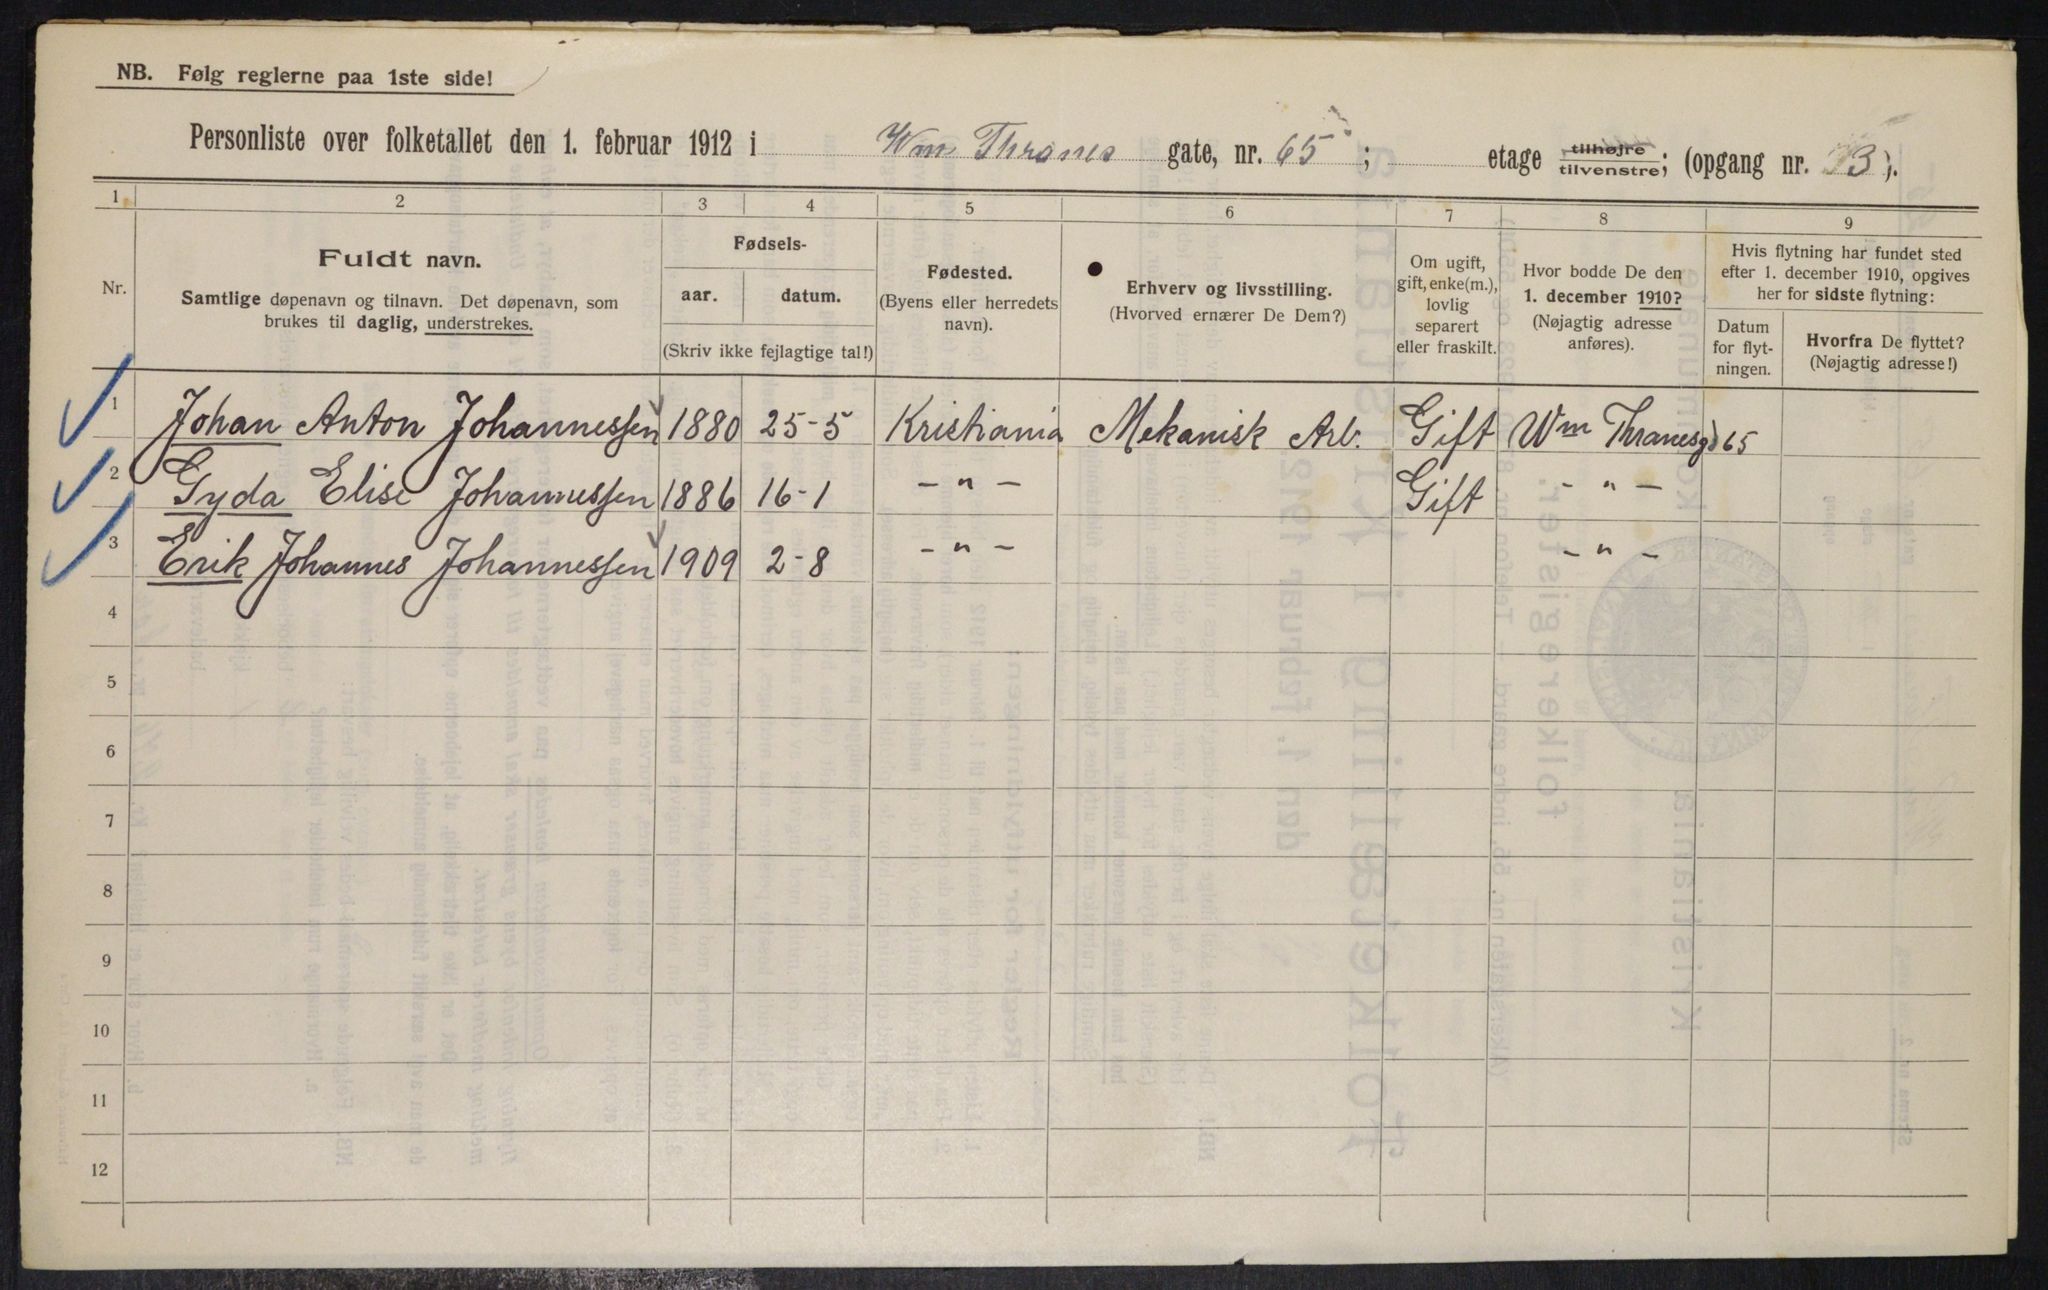 NB. Følg reglerne paa 1ste side!
Personliste over folketallet den 1. februar 1912 i Wm Thranes gate, nr. 65 ; etage tilhøjre tilvenstre; (opgang nr. 3).
1 2 3 4 5 6 7 8 9
Nr.
Fuldt navn.
Samtlige døpenavn og tilnavn. Det døpenavn, som
brukes til daglig, understrekes.
Fødsels-
aar. datum.
(Skriv ikke fejlagtige tal!)
Fødested.
(Byens eller herredets
navn).
Erhverv og livsstilling.
(Hvorved ernærer De Dem?)
Om ugift,
gift, enke(m.),
lovlig
separert
eller fraskilt.
Hvor bodde De den
1. december 1910?
(Nøjagtig adresse
anføres).
Hvis flytning har fundet sted
efter 1. december 1910, opgives
her for sidste flytning:
Datum
for flyt-
ningen.
Hvorfra De flyttet?
(Nøjagtig adresse!)
1 Johan Anton Johannessen 1880 25-5 Kristiania Mekanisk Arb. Gift Wm Thranesgd 65
2 Gyda Elise Johannessen 1886 16-1 -"- Gift -"-
3 Erik Johannes Johannessen 1909 2-8 -"- -"-
4
5
6
7
8
9
10
11
12